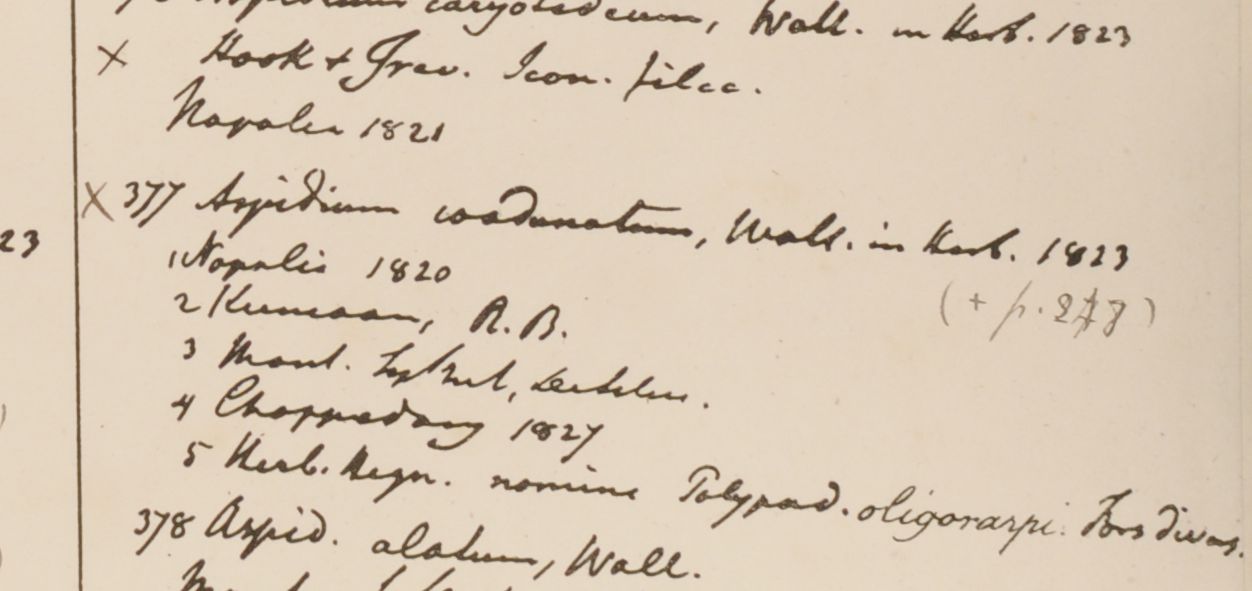 Aspidium caryotideum, Wall. in Herb. 1823
× Hook & Grev. Icon. filic.
Napalia 1821
× 377 Aspidium coadunatum, Wall. in Herb. 1823
23
1 Napalia 1820
(+ p.
2 Kumaon, R. B.
3 Mont. Sylhet, De Silva.
4 Chappedong 1827
5 Herb. Heyn. nomine Polypod. oligocarpi. Fors divers.
378 Aspid. alatum, Wall.